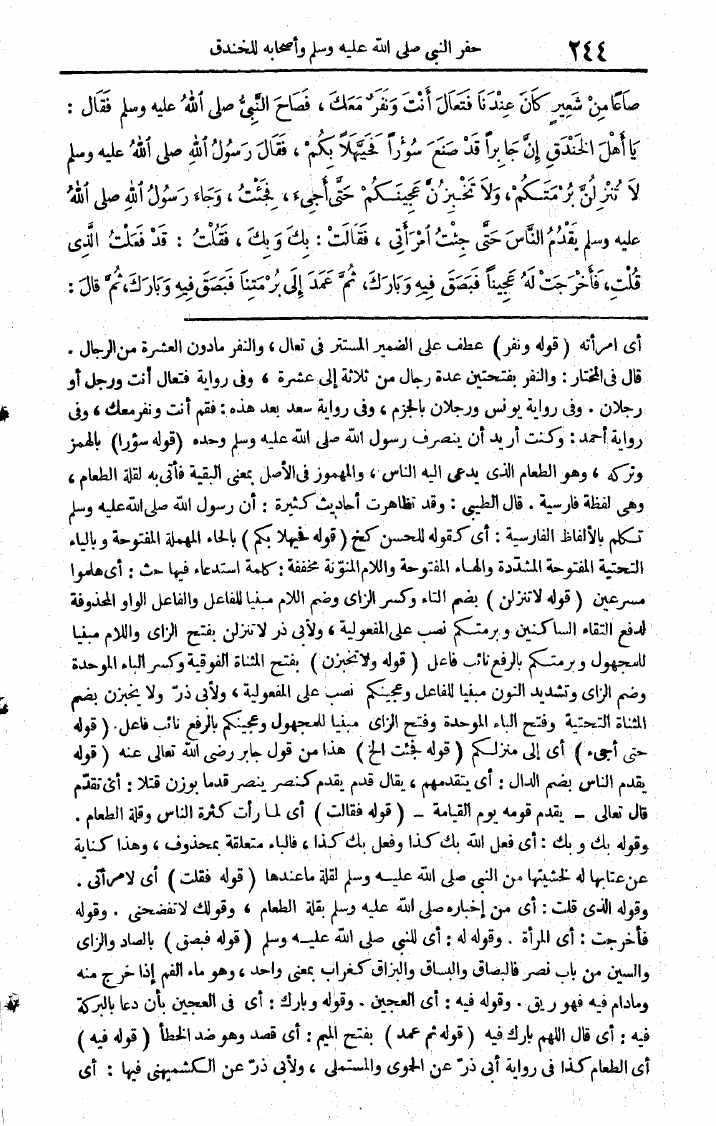 ٢٤٤ حفر النبي صلى الله عليه وسلم وأصحابه للخندق
صَاعًا مِنْ شَعِيرٍ كَانَ عِنْدَنَا فَتَعَالَ أَنْتَ وَنَفَرٌ مَعَكَ ، فَصَاحَ النَّبِيُّ صلى اللهُ عليه وسلم فَقَالَ :
يَا أَهْلَ الخَنْدَقِ إِنَّ جَابِراً قَدْ صَنَعَ سُؤْراً فَحَيَّهَلاً بِكُمْ ، فَقَالَ رَسُولُ اللهِ صلى اللهُ عليه وسلم
لَا تُنْزِلُنَّ بُرْمَتَكُمْ ، وَلَا تَخْبِزُنَّ عَجِينَكُمْ حَتَّى أَجِيءَ ، فَجِئْتُ ، وَجَاءَ رَسُولُ اللهِ صلى اللهُ
عليه وسلم يَقْدُمُ النَّاسَ حَتَّى جِئْتُ امْرَأَتِي ، فَقَالَتْ : بِكَ وَبِكَ ، فَقُلْتُ : قَدْ فَعَلْتُ الَّذِى
قُلْتِ، فَأَخْرَجَتْ لَهُ عَجِيناً فَبَصَقَ فِيهِ وَبَارَكَ، ثُمَّ عَمَدَ إِلَى بُرْمَتِنَا فَبَصَقَ فِيهِ وَبَارَكَ، ثُمَّ قَالَ :
أى امرأته ( قوله ونفر ) عطف على الضمير المستتر فى تعال ، والنفر مادون العشرة من الرجال .
قال فى المختار : والنفر بفتحتين عدة رجال من ثلاثة إلى عشرة ، وفى رواية فتعال أنت ورجل أو
رجلان . وفى رواية يونس ورجلان بالجزم ، وفى رواية سعد بعد هذه : فقم أنت ونفر معك ، وفى
رواية أحمد : وكنت أريد أن ينصرف رسول الله صلى الله عليه وسلم وحده (قوله سؤرا) بالهمز
وتركه ، وهو الطعام الذى يدعى اليه الناس ، والمهموز فى الأصل بمعنى البقية فأتى به لقلة الطعام ،
وهى لفظة فارسية . قال الطيبى : وقد تظاهرت أحاديث كثيرة : أن رسول الله صلى الله عليه وسلم
تكلم بالألفاظ الفارسية : أى كقوله للحسن كخ ( قوله فحيهلا بكم ) بالحاء المهملة المفتوحة و بالياء
التحتية المفتوحة المشدّدة والهاء المفتوحة واللام المنوّنة مخففة : كلمة استدعاء فيها حث : أى هلموا
مسرعين ( قوله لاتنزلن ) بضم التاء وكسر الزاى وضم اللام مبنيا للفاعل والفاعل الواو المحذوفة
لدفع التقاء الساكنين و برمتكم نصب على المفعولية ، ولأبى ذر لاتنزلن بفتح الزاى واللام مبنيا
للمجهول و برمتكم بالرفع نائب فاعل ( قوله ولاتخبزن ) بفتح المثناة الفوقية وكسر الباء الموحدة
وضم الزاى وتشديد النون مبنيا للفاعل وعجينكم نصب على المفعولية ، ولأبى ذرّ ولا يخبزن بضم
المثناة التحتية وفتح الباء الموحدة وفتح الزاى مبنيا للمجهول وعجينكم بالرفع نائب فاعل . ( قوله
حتى أجىء ) أى إلى منزلكم ( قوله فجئت الخ ) هذا من قول جابر رضى الله تعالى عنه ( قوله
يقدم الناس بضم الدال : أى يتقدمهم ، يقال قدم يقدم كنصر ينصر قدما بوزن قتلا : أى تقدّم
قال تعالى ــ يقدم قومه يوم القيامة ــ ( قوله فقالت ) أى لما رأت كثرة الناس وقلة الطعام .
وقوله بك و بك : أى فعل الله بك كذا وفعل بك كذا ، فالباء متعلقة بمحذوف ، وهذا كناية
عن عتابها له لخشيتها من النبى صلى الله عليه وسلم لقلة ماعندها ( قوله فقلت ) أى لامرأتى .
وقوله الذى قلت : أى من إخباره صلى الله عليه وسلم بقلة الطعام ، وقولك لاتفضحنى . وقوله
فأخرجت : أى المرأة . وقوله له : أى للنبى صلى الله عليه وسلم ( قوله فبصق ) بالصاد والزاى
والسين من باب نصر فالبصاق والبساق والبزاق كغراب بمعنى واحد ، وهو ماء الفم إذا خرج منه
ومادام فيه فهو ريق . وقوله فيه : أى العجين . وقوله و بارك : أى فى العجين بأن دعا بالبركة
فيه : أى قال اللهم بارك فيه ( قوله ثم عمد ) بفتح الميم : أى قصد وهو ضد الخطأ ( قوله فيه )
أى الطعام كذا فى رواية أبى ذرّ عن الحموى والمستملى ، ولأبى ذرّ عن الكشميهنى فيها : أى